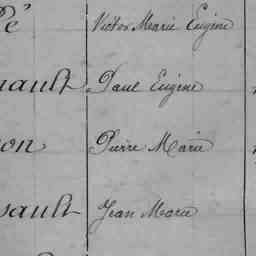 Pé Victor Marie Eugène
nault Paul Eugène
on Pierre Marie
sault Jean Marie